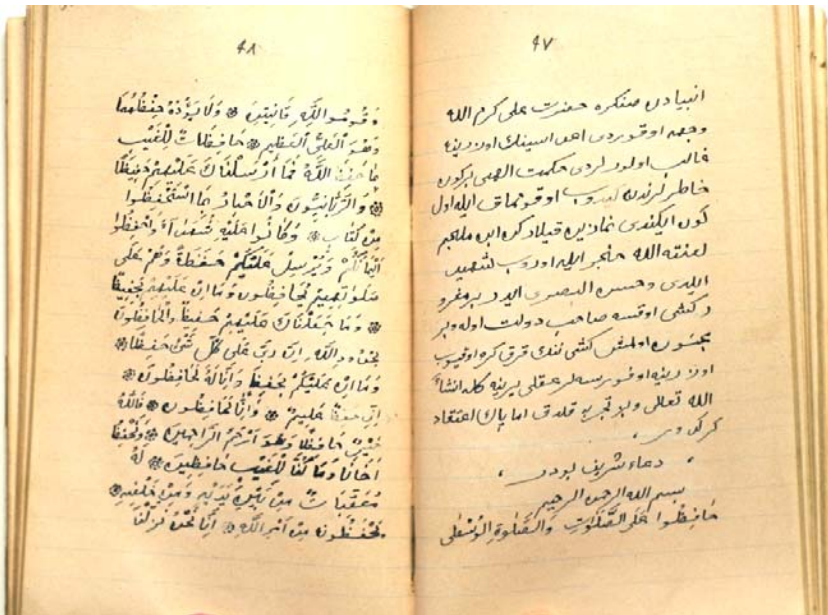 ٤٧
انبیادن صنکره حضرت علی کرم الله
وجهه اوقوردی اوزرینه
غالب اولورلردی حکمت الهی برکون
خاطرلرندن اوقونماق ایله اول
کون ایکندی نمازین قیلارکن ابن ملجم
لعنة الله خنجر ایله اوروب شهید
ایلدی وحسن البصری ایدر بر
کشی اوقسه صاحب دولت اوله وبر
مجنون اولمش کشی ننك قرق کره اوقیوب
اوزرینه اوفورسه لر عقلی یرینه کله انشا
الله تعالی وبو تجربه قلدق اما پاك اعتقاد
کرکدر
دعاء شریف بودر
بسم الله الرحمن الرحیم
حَافِظُوا عَلَى الصَّلَوَاتِ وَالصَّلٰوةِ الْوُسْطٰى
٤٨
وَقُومُوا لِلّٰهِ قَانِتِينَ ۞ وَلَا يَؤُدُهُ حِفْظُهُمَا
وَهُوَ الْعَلِيُّ الْعَظِيمُ ۞ حَافِظَاتٌ لِلْغَيْبِ
بِمَا حَفِظَ اللّٰهُ فَمَا أَرْسَلْنَاكَ عَلَيْهِمْ حَفِيظًا
۞ وَالرَّبَّانِيُّونَ وَالْأَحْبَارُ بِمَا اسْتُحْفِظُوا
مِنْ كِتَابِ ۞ وَكَانُوا عَلَيْهِ شُهَدَاءَ وَاحْفَظُوا
أَيْمَانَكُمْ وَيُرْسِلُ عَلَيْكُمْ حَفَظَةً وَهُمْ عَلَى
صَلَوتِهِمْ يُحَافِظُونَ وَمَا أَنَا عَلَيْكُمْ بِحَفِيظٍ
۞ وَمَا جَعَلْنَاكَ عَلَيْهِمْ حَفِيظًا وَالْحَافِظُونَ
لِحُدُودِ اللّٰهِ إِنَّ رَبِّي عَلَى كُلِّ شَيْءٍ حَفِيظٌ ۞
وَمَا أَنَا عَلَيْكُمْ بِحَفِيظٍ وَإِنَّا لَهُ لَحَافِظُونَ ۞
إِنِّي حَفِيظٌ عَلِيمٌ ۞ وَإِنَّا لَهُ لَحَافِظُونَ ۞ فَاللّٰهُ
خَيْرٌ حَافِظًا وَهُوَ أَرْحَمُ الرَّاحِمِينَ ۞ وَنَحْفَظُ
أَخَانَا وَمَا كُنَّا لِلْغَيْبِ حَافِظِينَ ۞ لَهُ
مُعَقِّبَاتٌ مِنْ بَيْنِ يَدَيْهِ وَمِنْ خَلْفِهِ ۞
يَحْفَظُونَهُ مِنْ أَمْرِ اللّٰهِ ۞ إِنَّا نَحْنُ نَزَّلْنَا